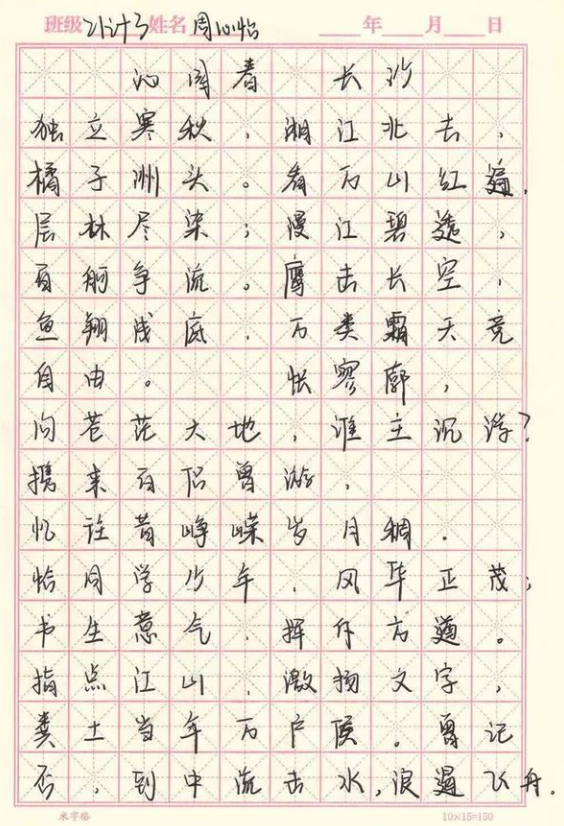 班级 计3 姓名 周 年 月 日
沁园春 长沙
独立寒秋，湘江北去，
橘子洲头。看万山红遍，
层林尽染；漫江碧透，
百舸争流。鹰击长空，
鱼翔浅底，万类霜天竞
自由。 怅寥廓，
问苍茫大地，谁主沉浮？
携来百侣曾游，
忆往昔峥嵘岁月稠．
恰同学少年，风华正茂；
书生意气，挥斥方遒。
指点江山，激扬文字，
粪土当年万户侯。曾记
否，到中流击水，浪遏飞舟．
米字格 10×15=150